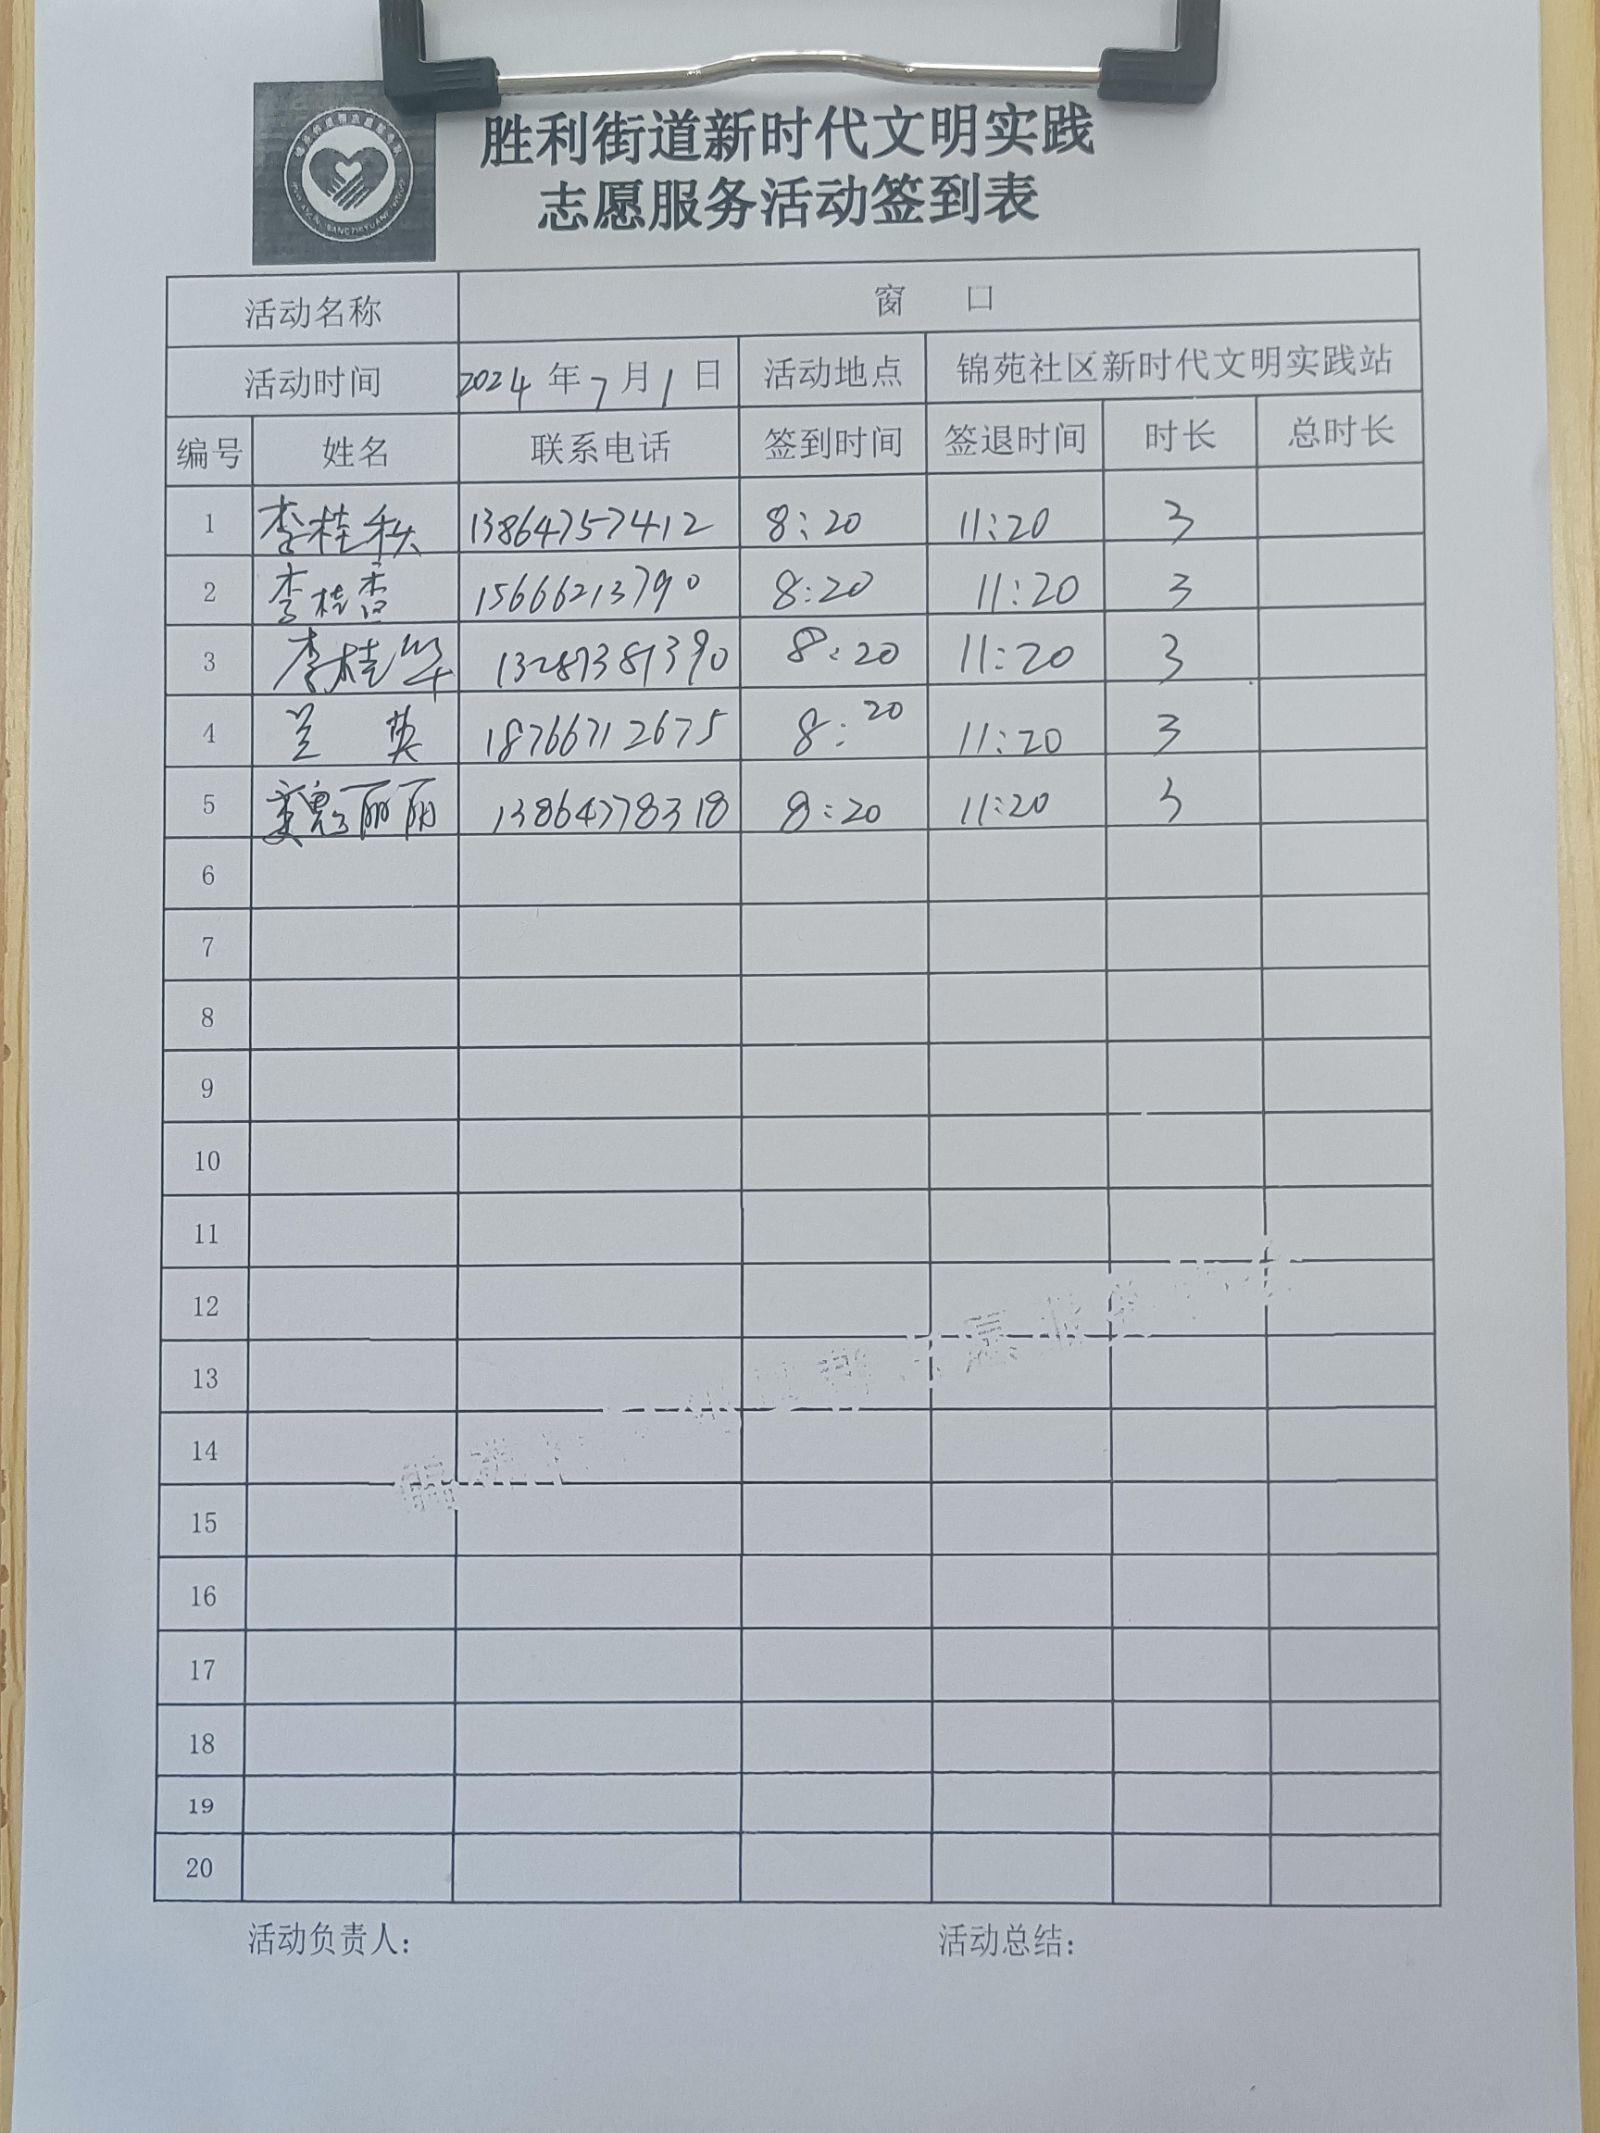 胜利街道新时代文明实践
志愿服务活动签到表
活动名称 窗 口
活动时间 2024年7月1日 活动地点 锦苑社区新时代文明实践站
编号 姓名 联系电话 签到时间 签退时间 时长 总时长
1 李桂秋 13864757412 8:20 11:20 3
2 李桂香 15666213790 8:20 11:20 3
3 李桂华 13287381390 8:20 11:20 3
4 兰英 18766712675 8:20 11:20 3
5 魏丽丽 13864778318 8:20 11:20 3
6
7
8
9
10
11
12
13
14
15
16
17
18
19
20
活动负责人: 活动总结: